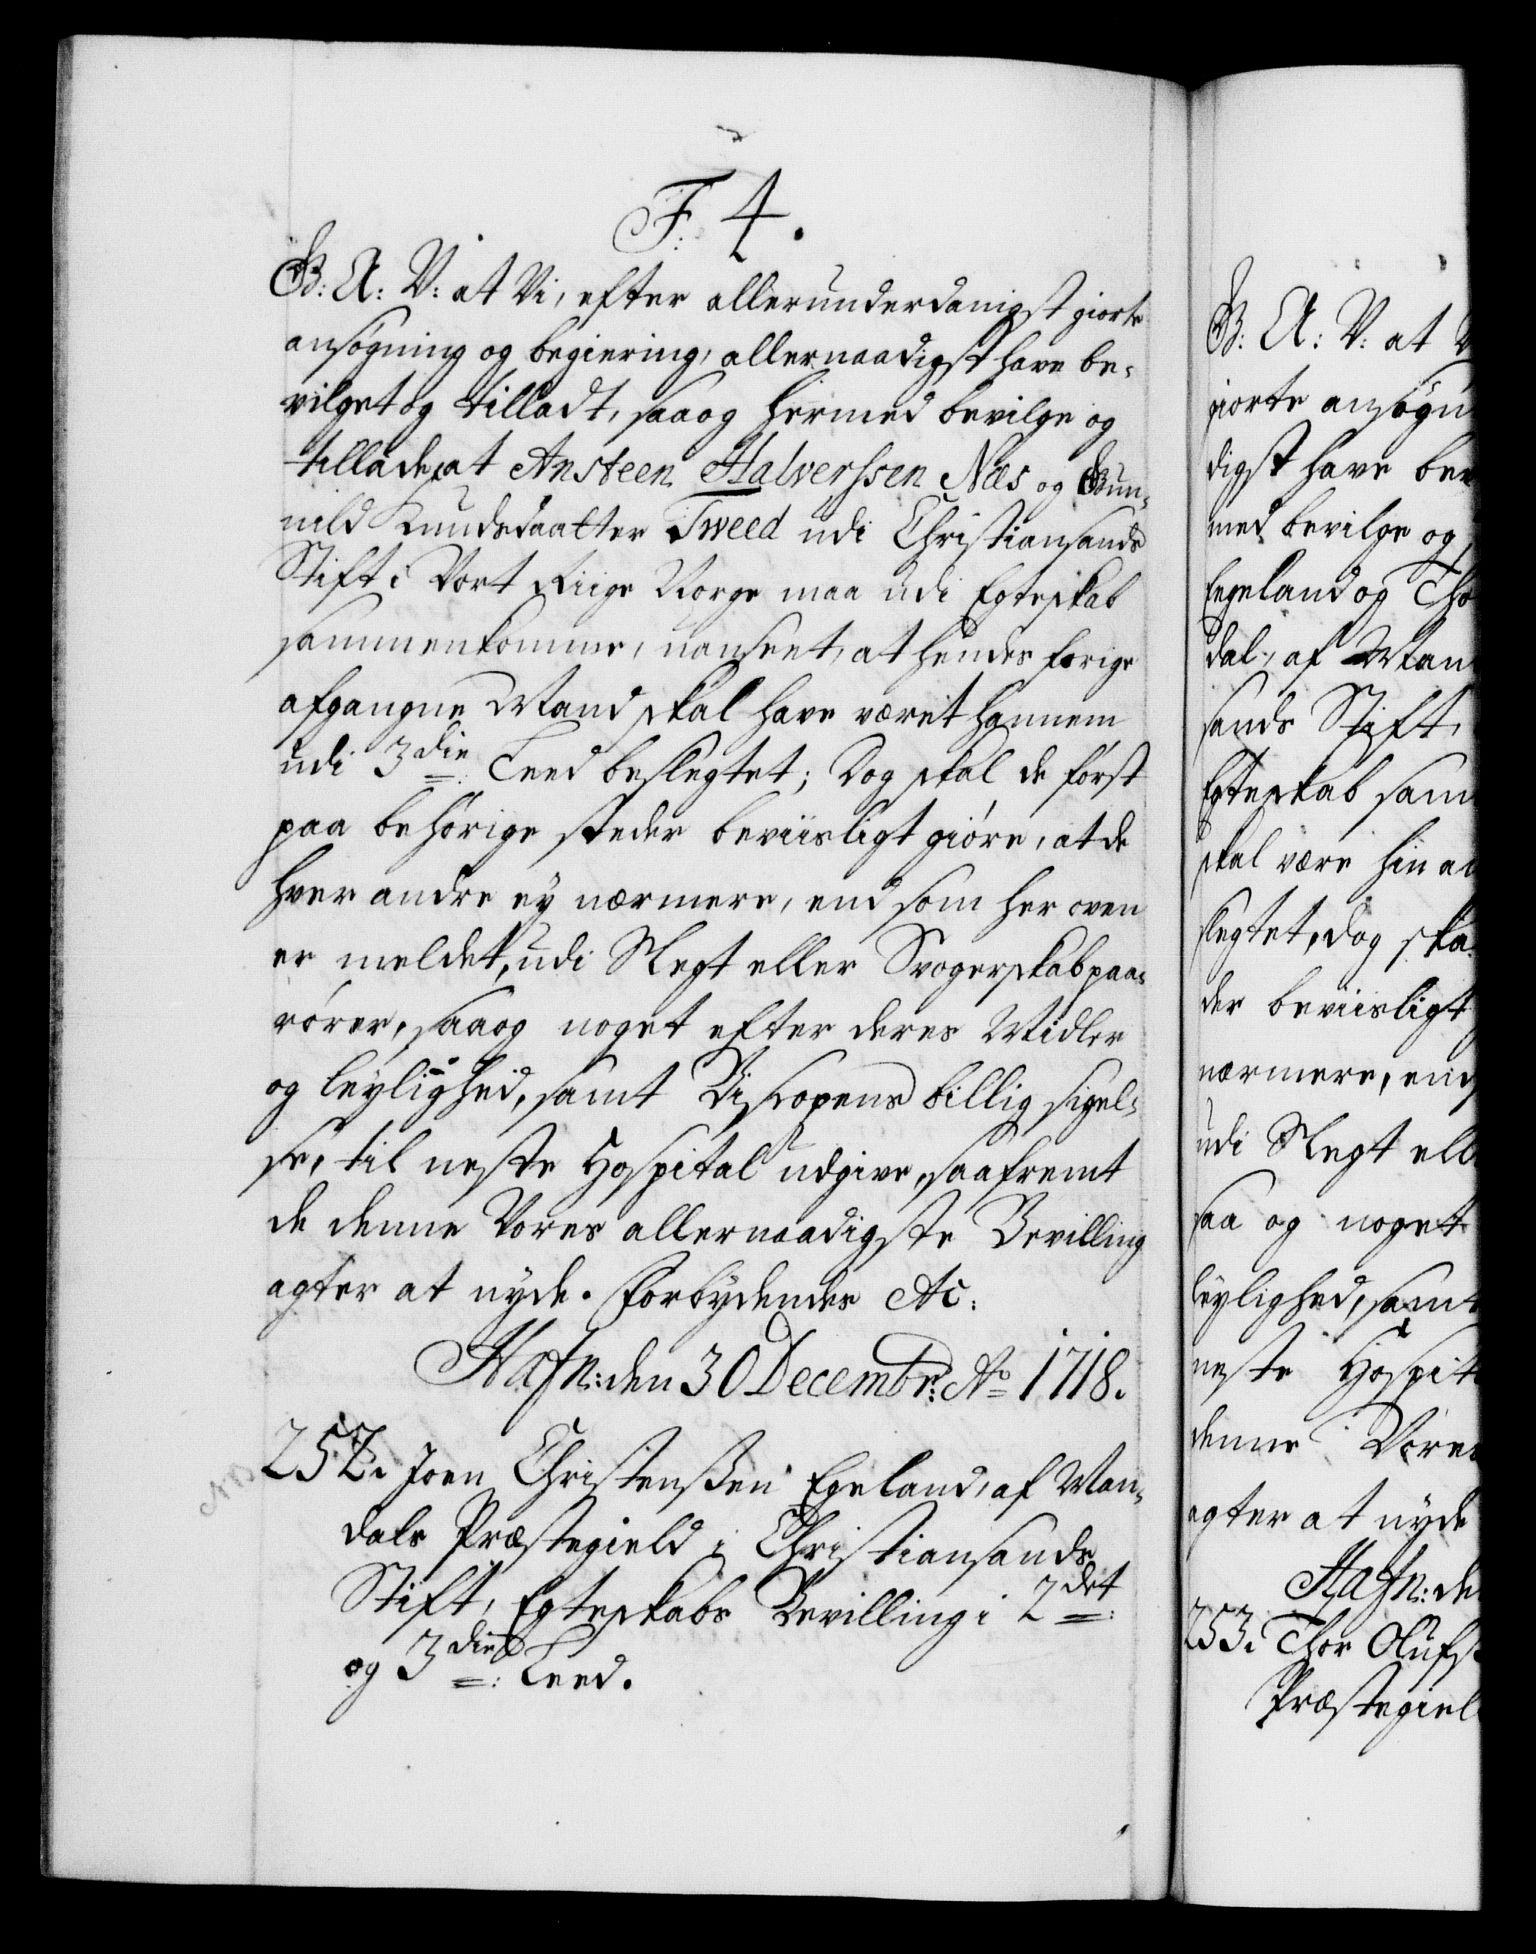 F: 4.
G: A: V: at Vi, efter allerunderdanigst giorte
ansøgning og begiering, allernaadigst have be-
vilget og tilladt, saa og hermed bevilge og
tillade, at Ansteen Halverssen Næs og Gun-
nild Knudsdaatter Tweed udi Christiansands
Stift i Vort Riige Norge maa udi Egteskab
sammenkomme, uanseet, at hendes forige
afgangne Mand skal have været hannem
udi 3die Leed beslegtet; Dog skal de først
paa behørige steder beviisligt giøre, at de
hver andre ey nærmere, end som her oven
er meldet, udi Slegt eller Svogerskab paa-
rører, saa og noget efter deres Midler
og leylighed, samt Biscopens billig sigel-
se, til neste Hospital udgive, saafremt
de denne Vores allernaadigste Bevilling
agter at nyde. Forbydendes &c:
Hafn: den 30 Decembr: Ao 1718.
252. Joen Christenssen Egeland, af Man-
dals Præstegield i Christiansands
Stift, Egteskabs Bevilling i 2det
og 3die Leed.
G: A: V: at V
giorte ansøgn
digst have bev
med bevilge og
Egeland og Tho
dal, af Man
sands Stift,
Egteskab sam
skal være hin an
slegtet, dog ska
der beviisligt
nærmere, end
udi Slegt ell
saa og noget
leylighed, samt
neste Hospit
denne Vores
agter at nyde
Hafn: de
253. Thor Olufs
Præstegiel